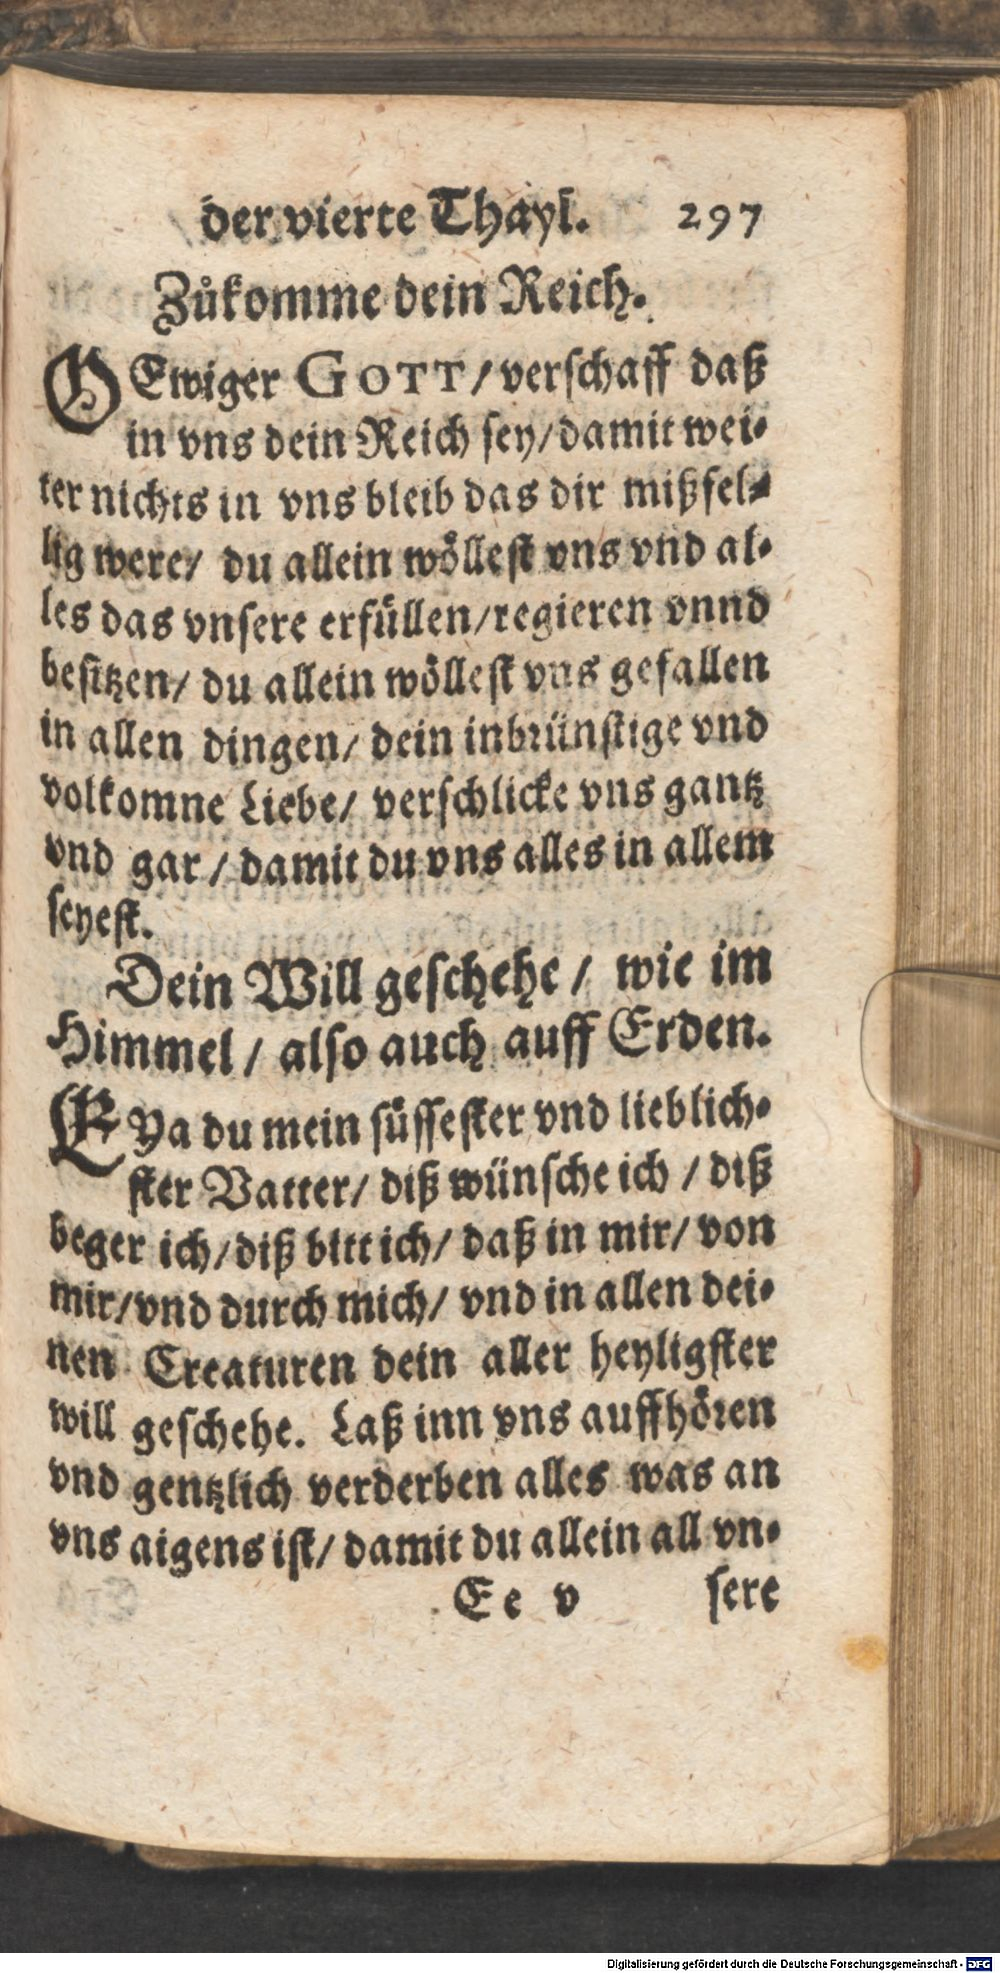 der vierte Thayl. 297
Zůkomme dein Reich.
O Ewiger GOTT/ verschaff daß
in vns dein Reich sey/ damit wei-
ter nichts in vns bleib das dir mißfel-
lig were/ du allein wöllest vns vnd al-
les das vnsere erfüllen/ regieren vnnd
besitzen/ du allein wöllest vns gefallen
in allen dingen/ dein inbrünstige vnd
volkomne Liebe/ verschlicke vns gantz
vnd gar / damit du vns alles in allem
seyest.
Dein Will geschehe / wie im
Himmel / also auch auff Erden.
EYa du mein süssester vnd lieblich-
ster Vatter/ diß wünsche ich / diß
beger ich/ diß bitt ich/ daß in mir/ von
mir/ vnd durch mich/ vnd in allen dei-
nen Creaturen dein aller heyligster
will geschehe. Laß inn vns auffhören
vnd gentzlich verderben alles was an
vns aigens ist/ damit du allein all vn-
Ee v sere
Digitalisierung gefördert durch die Deutsche Forschungsgemeinschaft - DFG